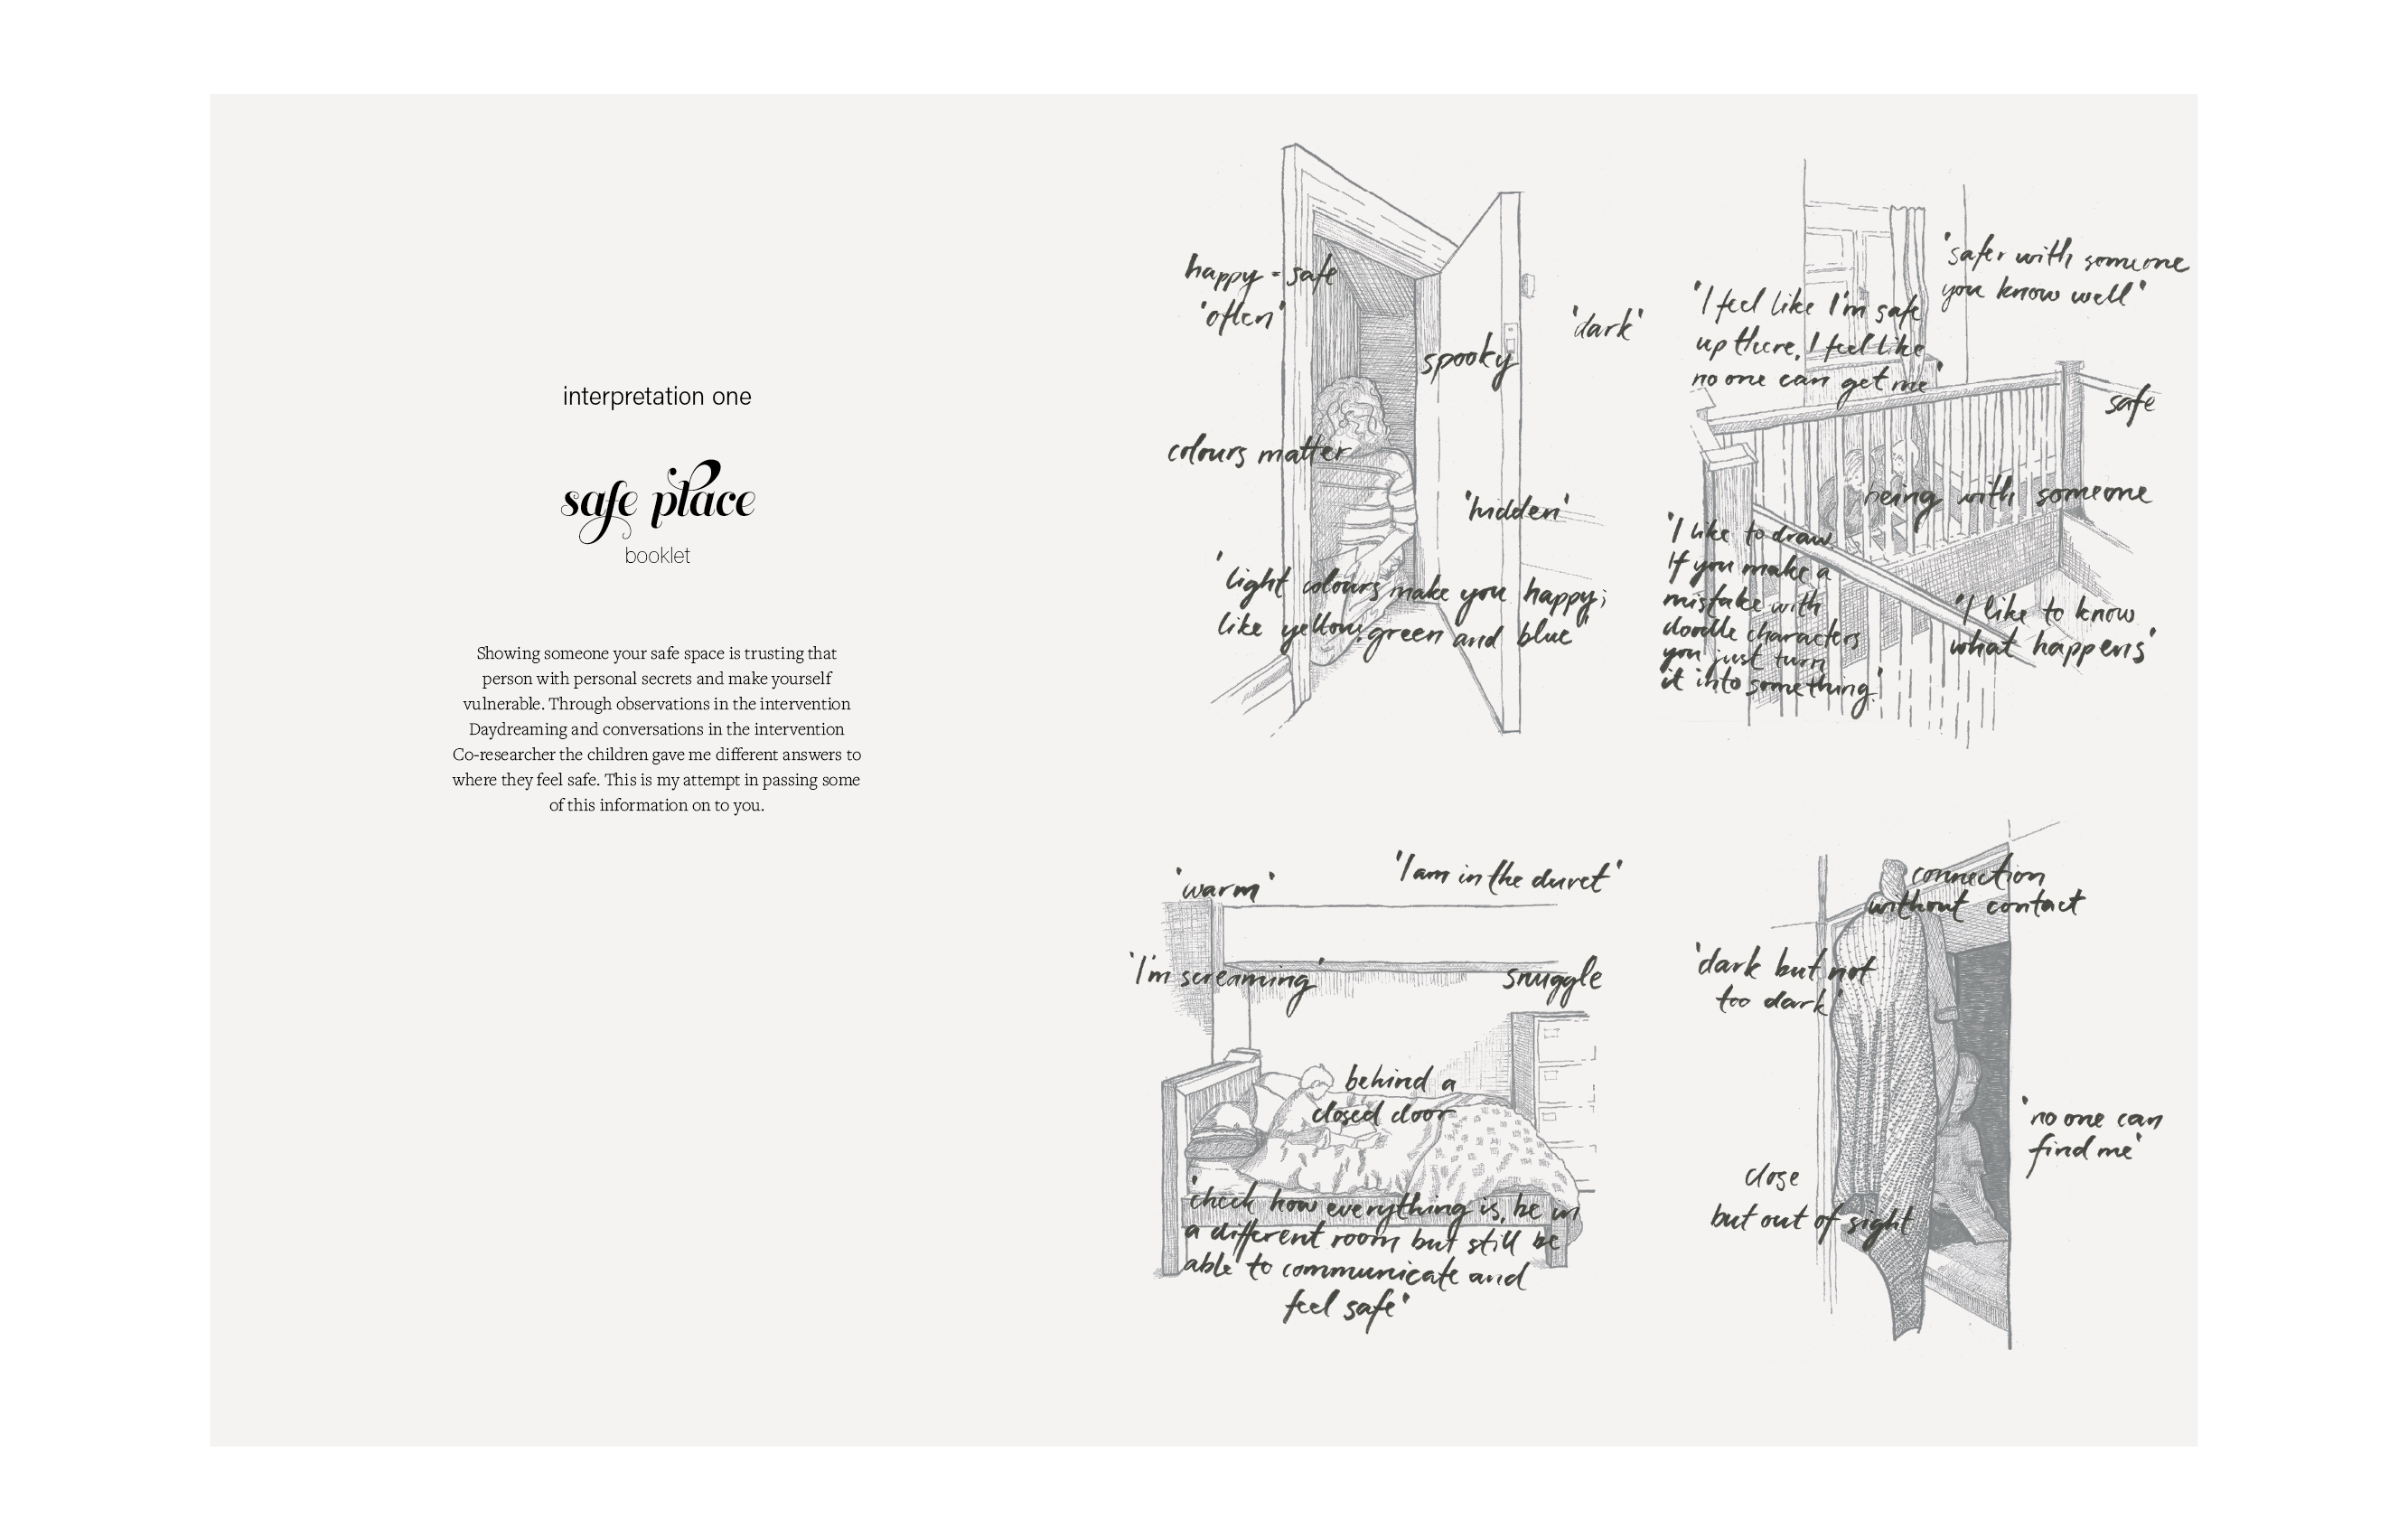 interpretation one
safe place
booklet
Showing someone your safe space is trusting that
person with personal secrets and make yourself
vulnerable. Through observations in the intervention
Daydreaming and conversations in the intervention
Co-researcher the children gave me different answers to
where they feel safe. This is my attempt in passing some
of this information on to you.
happy = safe
'often'
'dark'
spooky
colours matter
'hidden'
'light colours make you happy;
like yellow, green and blue'
'safer with someone
you know well'
'I feel like I'm safe
up there, I feel like
no one can get me'
safe
being with someone
'I like to draw
If you make a
mistake with
doodle characters
you just turn
it into something.'
'I like to know
what happens'
'warm'
'I am in the duvet'
'I'm screaming'
snuggle
behind a
closed door
'check how everything is, be in
a different room but still be
able to communicate and
feel safe'
connection
without contact
'dark but not
too dark'
'no one can
find me'
close
but out of sight